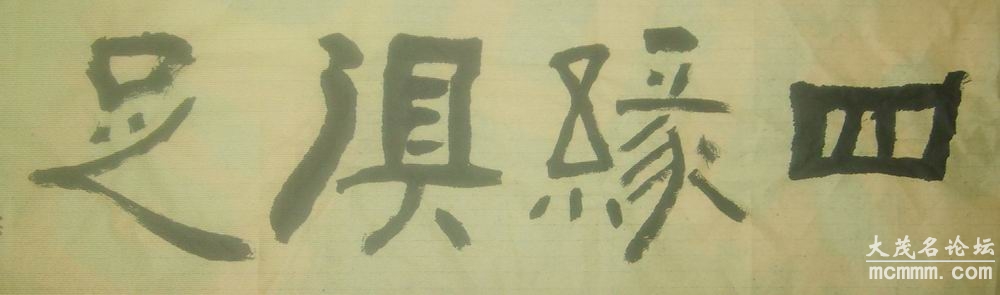 四緣俱足
大茂名论坛
mcmmm.com